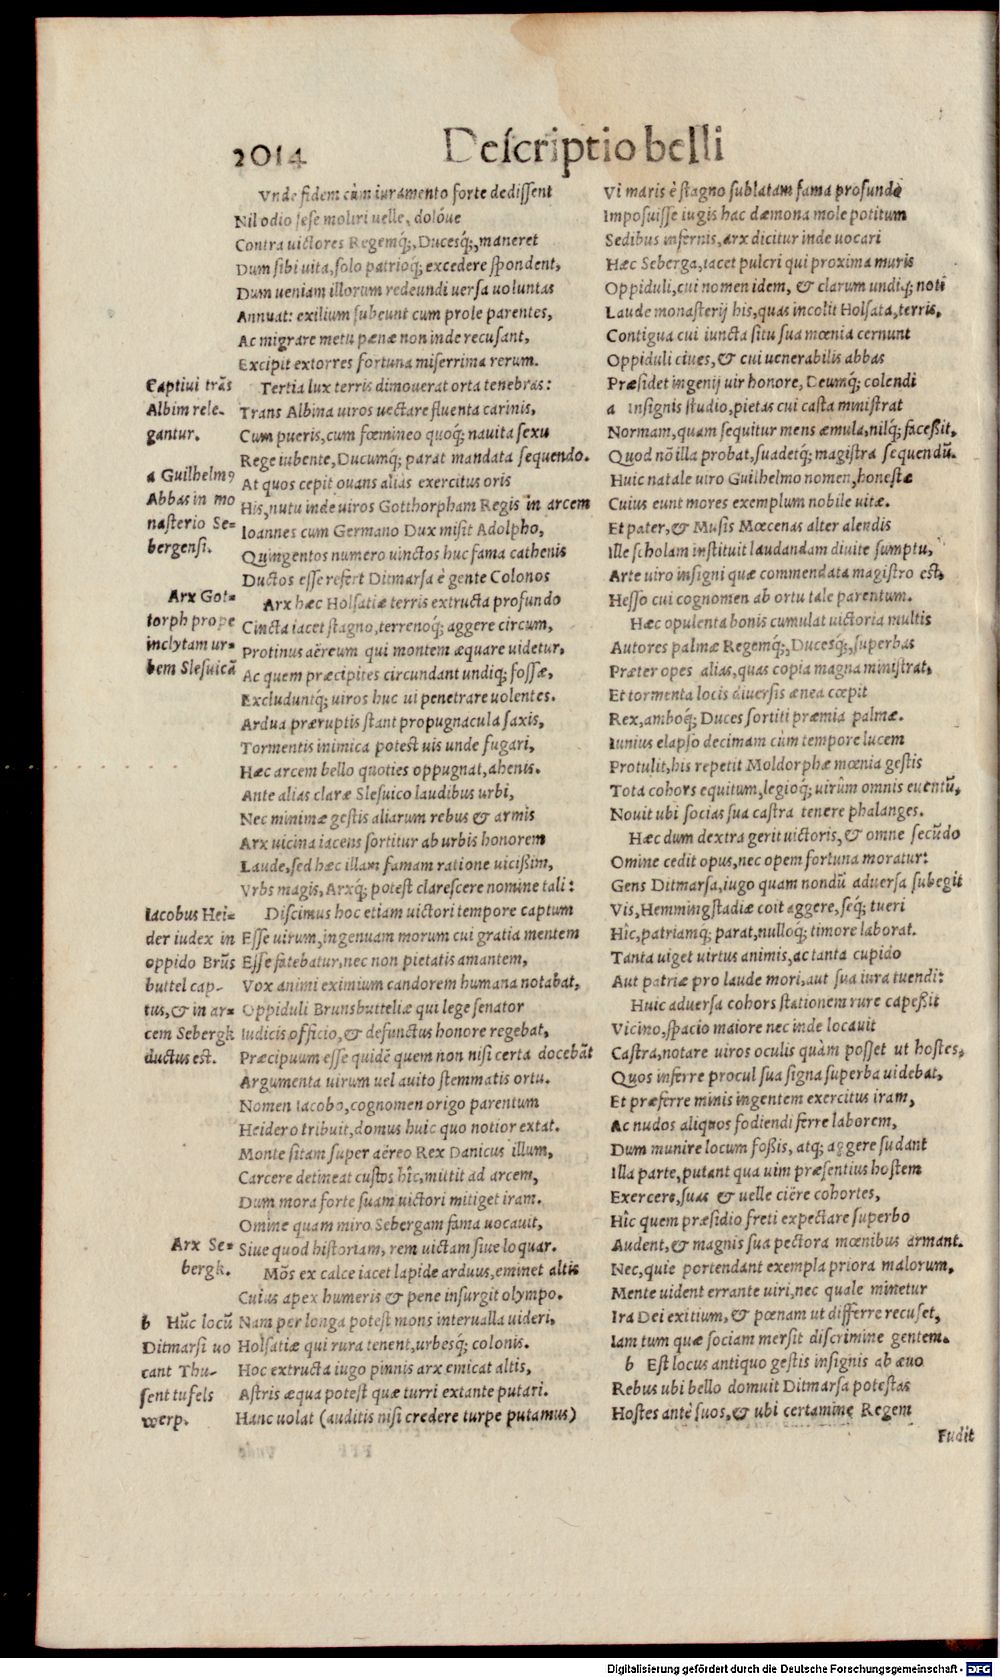 2014
Descriptio belli
Vnde fidem cùm iuramento forte dedissent
Nil odio sese moliri uelle, dolóue
Contra uictores Regemq́;, Ducesq́;, maneret
Dum sibi uita, solo patrioq́; excedere spondent,
Dum ueniam illorum redeundi uersa uoluntas
Annuat: exilium subeunt cum prole parentes,
Ac migrare metu pœnæ non inde recusant,
Excipit extorres fortuna miserrima rerum.
Captiui trãs
Albim rele-
gantur.
Tertia lux terris dimouerat orta tenebras:
Trans Albina uiros uectare fluenta carinis,
Cum pueris, cum fœmineo quoq́; nauita sexu
Rege iubente, Ducumq́; parat mandata sequendo.
a Guilhelm9
Abbas in mo
nasterio Se=
bergensi.
At quos cepit ouans alias exercitus oris
His, nutu inde uiros Gotthorpham Regis in arcem
Ioannes cum Germano Dux misit Adolpho,
Quingentos numero uinctos huc fama cathenis
Ductos esse refert Ditmarsa è gente Colonos
Arx Got=
torph prope
inclytam ur=
bem Slesuicã
Arx hæc Holsatiæ terris extructa profundo
Cincta iacet stagno, terrenoq́; aggere circum,
Protinus aëreum qui montem æquare uidetur,
Ac quem præcipites circundant undiq; fossæ,
Excludũntq́; uiros huc ui penetrare uolentes.
Ardua præruptis stant propugnacula saxis,
Tormentis inimica potest uis unde fugari,
Hæc arcem bello quoties oppugnat, ahenis.
Ante alias claræ Slesuico laudibus urbi,
Nec minimæ gestis aliarum rebus & armis
Arx uicina iacens sortitur ab urbis honorem
Laude, sed hæc illam famam ratione uicißim,
Vrbs magis, Arxq́; potest clarescere nomine tali:
Iacobus Hei=
der iudex in
oppido Brũs
buttel cap-
tus, & in ar=
cem Sebergk
ductus est.
Discimus hoc etiam uictori tempore captum
Esse uirum, ingenuam morum cui gratia mentem
Esse fatebatur, nec non pietatis amantem,
Vox animi eximium candorem humana notabat,
Oppiduli Brunsbutteliæ qui lege senator
Iudicis officio, & defunctus honore regebat,
Præcipuum esse quidẽ quem non nisi certa docebãt
Argumenta uirum uel auito stemmatis ortu.
Nomen Iacobo, cognomen origo parentum
Heidero tribuit, domus huic quo notior extat.
Monte sitam super aëreo Rex Danicus illum,
Carcere detineat custos hîc, mittit ad arcem,
Dum mora forte suam uictori mitiget iram.
Omine quam miro Sebergam fama uocauit,
Arx Se=
bergk.
Siue quod historiam, rem uictam siue loquar.
Mõs ex calce iacet lapide arduus, eminet altis
Cuius apex humeris & pene insurgit olympo.
b Hũc locũ
Ditmarsi uo
cant Thu-
sent tufels
werp.
Nam per longa potest mons interualla uideri,
Holsatiæ qui rura tenent, urbesq́; colonis.
Hoc extructa iugo pinnis arx emicat altis,
Astris æqua potest quæ turri extante putari.
Hanc uolat (auditis nisi credere turpe putamus)
Vi maris è stagno sublatam fama profundo
Imposuisse iugis hac dæmona mole potitum
Sedibus infernis, arx dicitur inde uocari
Hæc Seberga, iacet pulcri qui proxima muris
Oppiduli, cui nomen idem, & clarum undiq; noti
Laude monasterij his, quas incolit Holsata, terris.
Contigua cui iuncta situ sua mœnia cernunt
Oppiduli ciues, & cui uenerabilis abbas
Præsidet ingenij uir honore, Deumq́; colendi
a Insignis studio, pietas cui casta ministrat
Normam, quam sequitur mens æmula, nilq́; faceßit,
Quod nõ illa probat, suadetq́; magistra sequendũ.
Huic natale uiro Guilhelmo nomen, honestæ
Cuius eunt mores exemplum nobile uitæ.
Et pater, & Musis Mœcenas alter alendis
Ille scholam instituit laudandam diuite sumptu,
Arte uiro insigni quæ commendata magistro est,
Hesso cui cognomen ab ortu tale parentum.
Hæc opulenta bonis cumulat uictoria multis
Autores palmæ Regemq́;, Ducesq́;, superbas
Præter opes alias, quas copia magna ministrat,
Et tormenta locis diuersis ænea cœpit
Rex, amboq́; Duces sortiti præmia palmæ.
Iunius elapso decimam cùm tempore lucem
Protulit, his repetit Moldorphæ mœnia gestis
Tota cohors equitum, legioq́; uirûm omnis euentũ,
Nouit ubi socias sua castra tenere phalanges.
Hæc dum dextra gerit uictoris, & omne secũdo
Omine cedit opus, nec opem fortuna moratur:
Gens Ditmarsa, iugo quam nondũ aduersa subegit
Vis, Hemmingstadiæ coit aggere, seq́; tueri
Hîc, patriamq́; parat, nulloq́; timore laborat.
Tanta uiget uirtus animis, ac tanta cupido
Aut patriæ pro laude mori, aut sua iura tuendi:
Huic aduersa cohors stationem rure capeßit
Vicino, spacio maiore nec inde locauit
Castra, notare uiros oculis quàm posset ut hostes,
Quos inferre procul sua signa superba uidebat,
Et præferre minis ingentem exercitus iram,
Ac nudos aliquos fodiendi ferre laborem,
Dum munire locum foßis, atq; aggere sudant
Illa parte, putant qua uim præsentius hostem
Exercere, suas & uelle ciëre cohortes,
Hîc quem præsidio freti expectare superbo
Audent, & magnis sua pectora mœnibus armant.
Nec, quie portendant exempla priora malorum,
Mente uident errante uiri, nec quale minetur
Ira Dei exitium, & pœnam ut differre recuset,
Iam tum quæ sociam mersit discrimine gentem.
b Est locus antiquo gestis insignis ab æuo
Rebus ubi bello domuit Ditmarsa potestas
Hostes antè suos, & ubi certamine Regem
Fudit
Digitalisierung gefördert durch die Deutsche Forschungsgemeinschaft - DFG